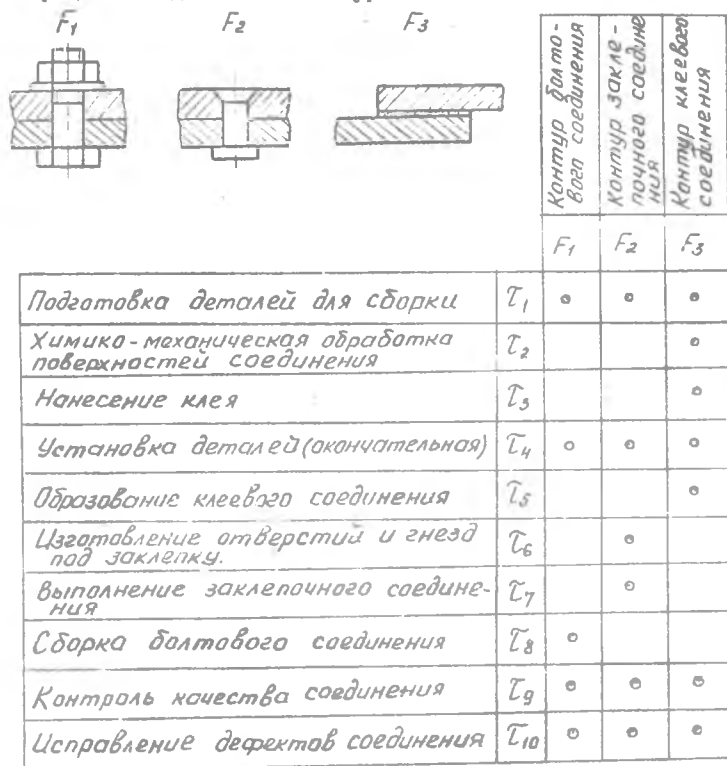 F₁ F₂ F₃
Контур болто-
вого соединения
Контур закле-
почного соедине
ния
Контур клеевого
соединения
F₁ F₂ F₃
Подготовка деталей для сборки τ₁
Химико-механическая обработка
поверхностей соединения τ₂
Нанесение клея τ₃
Установка деталей (окончательная) τ₄
Образование клеевого соединения τ₅
Изготовление отверстий и гнезд
под заклепку. τ₆
Выполнение заклепочного соедине-
ния τ₇
Сборка болтового соединения τ₈
Контроль качества соединения τ₉
Исправление дефектов соединения τ₁₀